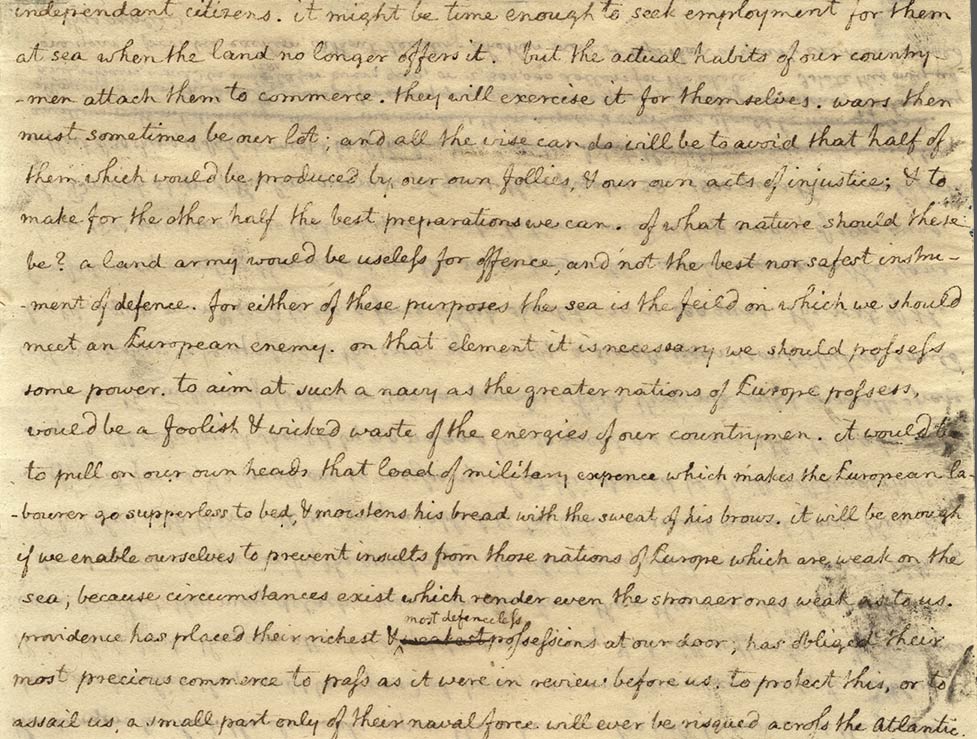 independant citizens. it might be time enough to seek employment for them
at sea when the land no longer offers it. but the actual habits of our country-
-men attach them to commerce. they will exercise it for themselves. wars then
must sometimes be our lot; and all the wise can do will be to avoid that half of
them which would be produced by our own follies, & our own acts of injustice; & to
make for the other half the best preparations we can. of what nature should these
be? a land army would be useless for offence, and not the best nor safest instru-
-ment of defence. for either of these purposes the sea is the feild on which we should
meet an European enemy. on that element it is necessary we should possess
some power. to aim at such a navy as the greater nations of Europe possess,
would be a foolish & wicked waste of the energies of our countrymen. it would be
to pull on our own heads that load of military expence which makes the European la-
-bourer go supperless to bed, & moistens his bread with the sweat of his brows. it will be enough
if we enable ourselves to prevent insults from those nations of Europe which are weak on the
sea, because circumstances exist which render even the stronger ones weak as to us.
most defenceless
providence has placed their richest & weakest possessions at our door; has obliged their
most precious commerce to pass as it were in review before us. to protect this, or to
assail us, a small part only of their naval force will ever be risqued across the Atlantic.